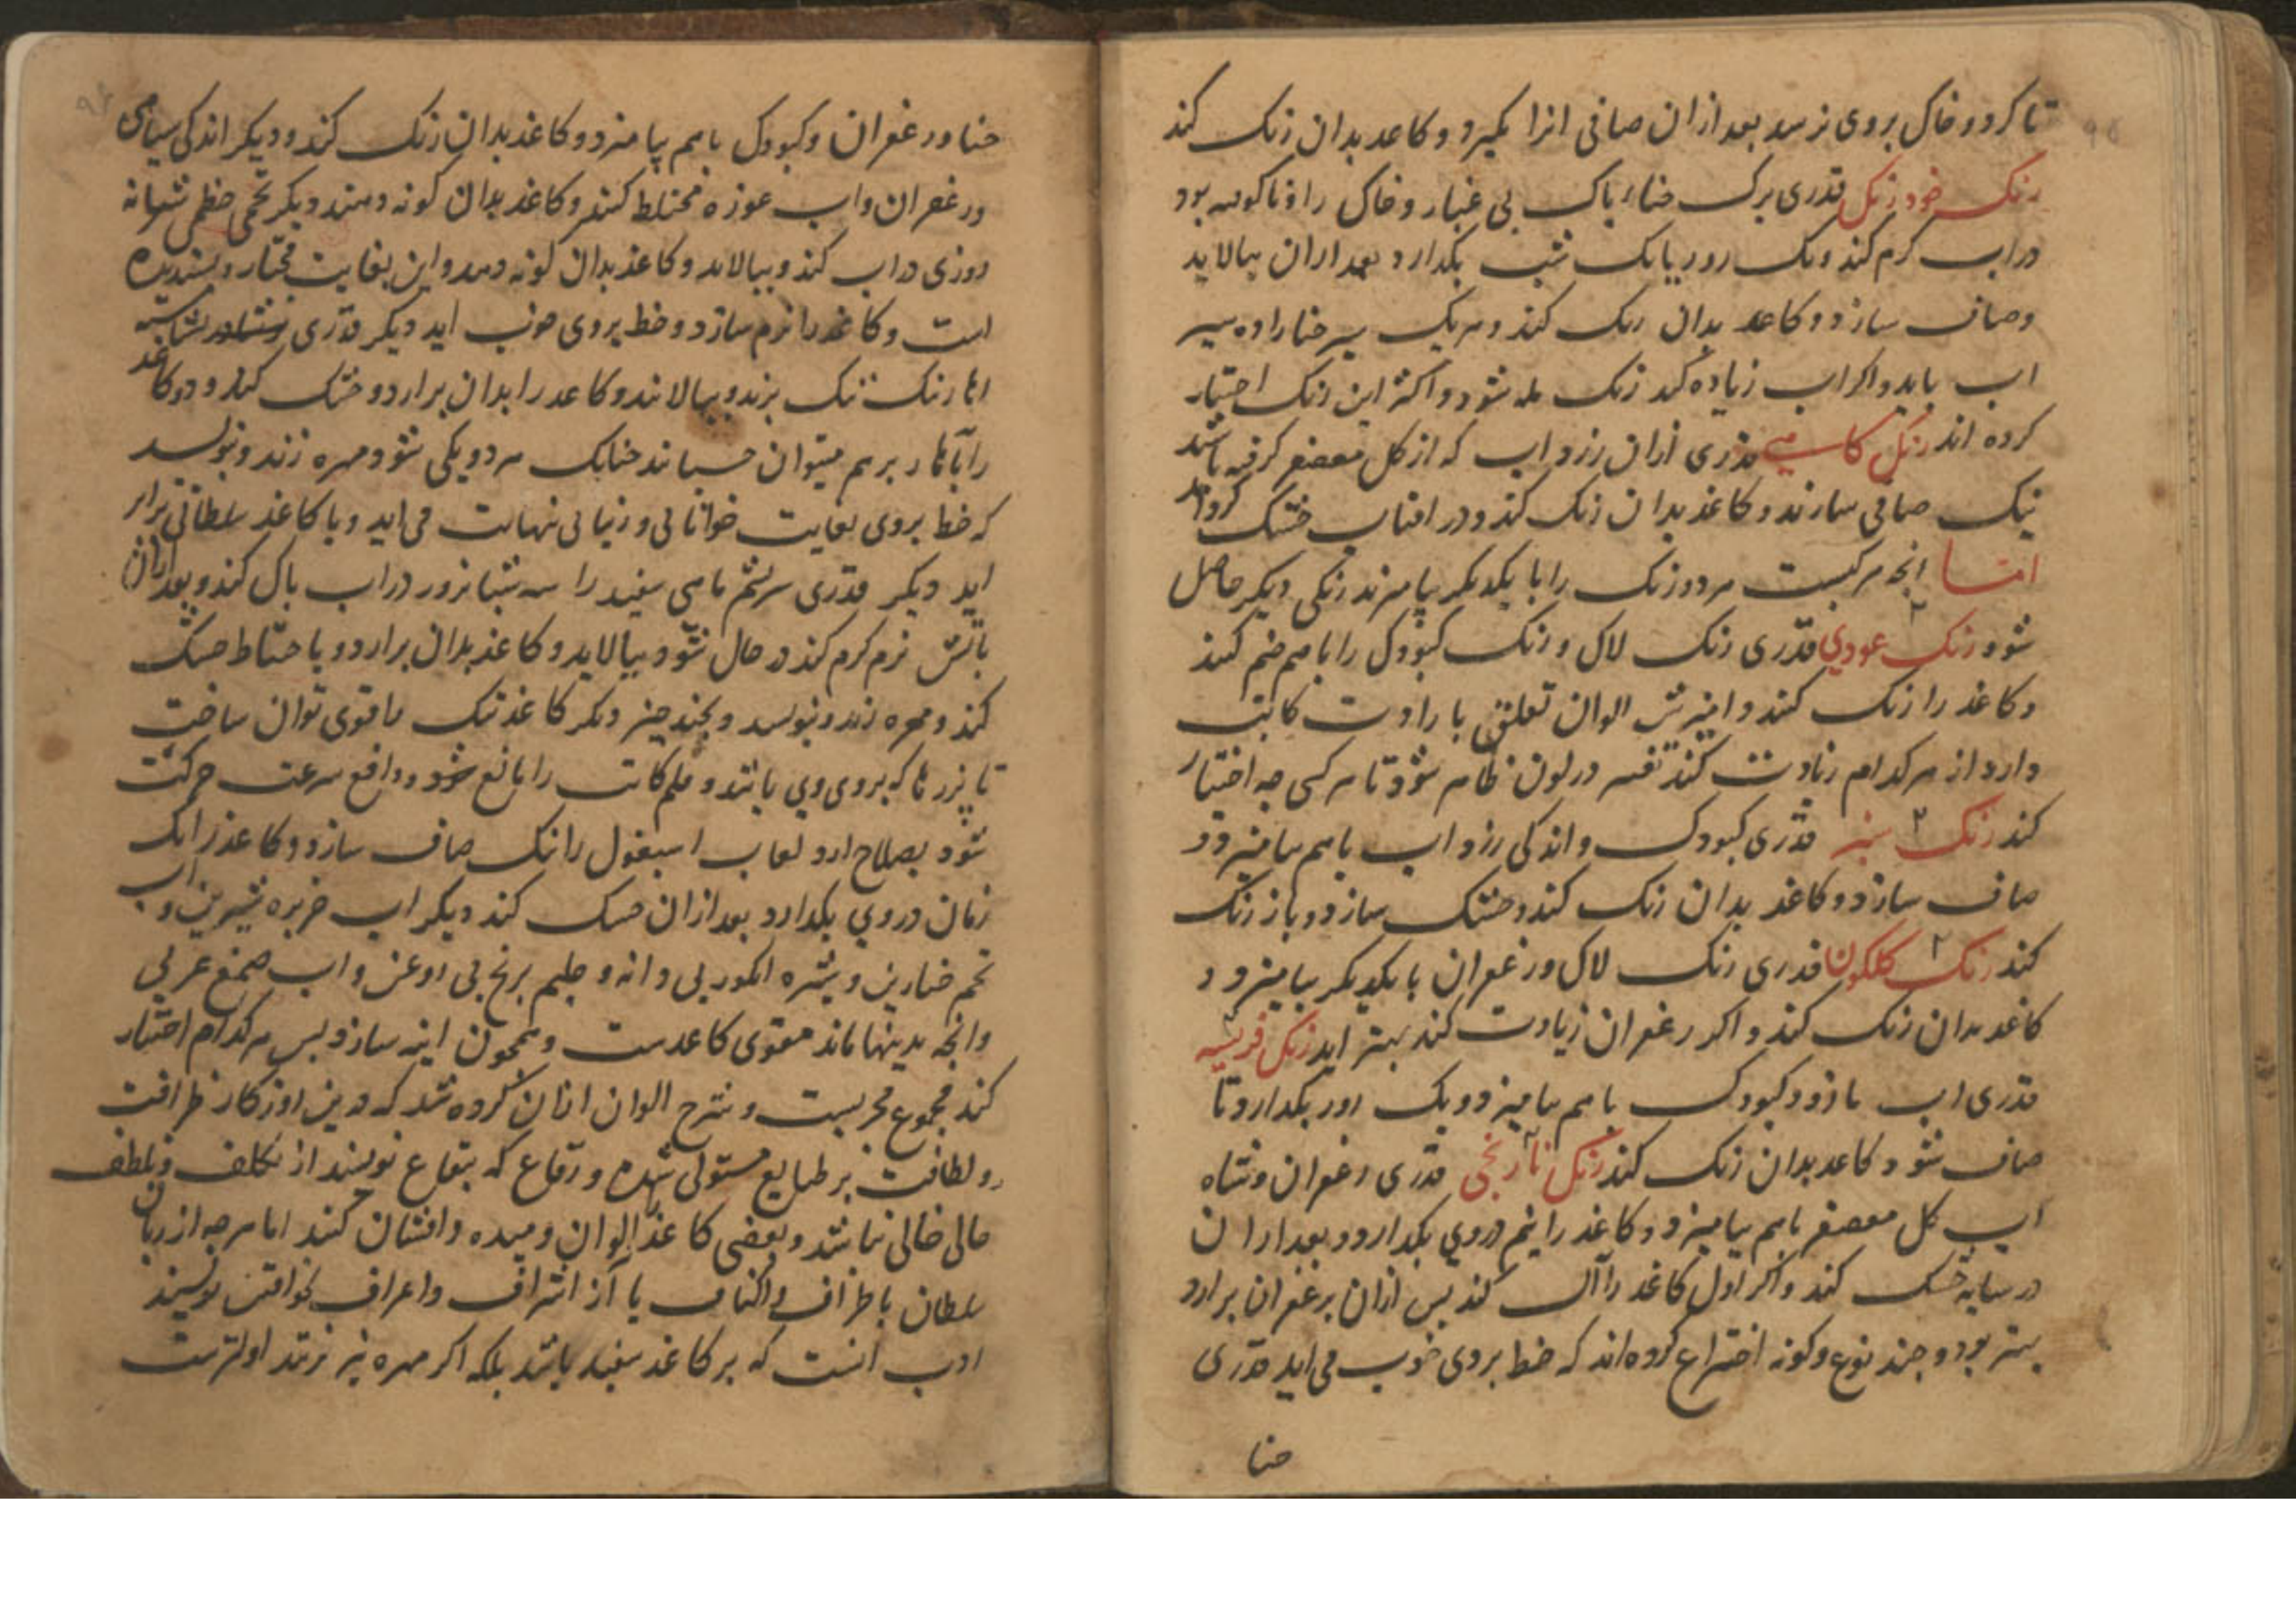 تا کرد و خاک بروی نرسد بعد ازان صافی انرا بکیرد و کاعد بدان رنک کند
رنک خود رنک قدری برک حناء پاک بی غبار و خاک را و ناکوفته بود
دراب کرم کند و یک روز یا یک شب بکدارد بعد ازان بپالاید
و صاف سازد و کاعد بدان رنک کند و هر یک سیر حنا را ده سیر
اب باید و اکر اب زیاده کند رنک مله شود و اکثر این رنک اختیار
کرده اند رنک کاسنی قدری ازان زرد اب که از کل معصفر کرفته باشد
نیک صافی سازند و کاغذ بدان رنک کند و در افتاب خشک کرداند
امّا انچه مرکبست هر دو رنک را با یکدیکر بیامیزند رنکی دیکر حاصل
شود رنک عودی قدری رنک لاک و رنک کبودک را باهم ضم کنند
و کاغذ را رنک کنند و امیزش الوان تعلق بارادت کاتب
دارد از هر کدام زیادت کند تغییر در لون ظاهر شود تا هر کسی چه اختیار
کند رنک سبز قدری کبودک و اندکی زرد اب باهم بیامیزد و
صاف سازد و کاغذ بدان رنک کند و خشک سازد و باز رنک
کند رنک کلکون قدری رنک لاک و زعفران با یکدیکر بیامیزد و
کاغذ بدان رنک کند و اکر زعفران زیادت کند بهتر اید رنک
قدری اب مازو و کبودک باهم بیامیزد و یک روز بکدارد تا
صاف شود و کاعد بدان رنک کند رنک نارنجی قدری زعفران و شاه
اب کل معصفر باهم بیامیزد و کاغذ را نیم در وی بکدارد و بعد ازان
در سایه خشک کند و اکر اول کاغذ را آل کند پس ازان بزعفران برارد
بهتر بود و چند نوع و کونه اختراع کرده اند که خط بروی خوب می اید قدری
حنا
حنا و زعفران و کبودک باهم بیامیزد و کاغذ بدان رنک کند و دیکر اندکی سیاهی
و زعفران و اب غوزه مختلط کنند و کاغذ بدان کونه دهند دیکر تخمی خطمی شبانه
روزی دراب کند و بپالاید و کاغذ بدان کونه دهد و این بغایت مختار و پسندیده
است و کاغذ را نرم سازد و خط بروی خوب اید دیکر قدری نشاسته
اهار تنک تنک بپزند و بپالانند و کاعد را بدان برارد و خشک کند و دو کاغذ
را باهار برهم میتوان چسباند چنانک هر دو یکی شود و مهره زند و نویسد
که خط بروی بغایت خوانائی و زیبائی نهایت می اید و با کاغذ سلطانی برابر
اید دیکر قدری سریشم ماهی سفید را سه شبانروز دراب پاک کند و بعد ازان
باتش نرم کرم کند در حال شود بپالاید و کاغذ بدان برارد و باحتیاط خشک
کند و مهره زند و نویسد و بچند چیز دیکر کاغذ تنک را قوی توان ساخت
تا پرزها که بروی وی باشد و قلم کاتب را مانع شود و دافع سرعت حرکت
شود بصلاح ارد لعاب اسبغول را نیک صاف سازد و کاغذ را یک
زمان در وی بکدارد بعد ازان خشک کند دیکر اب خربزه شیرین و اب
تخم خیارین و شیره انکور بی دانه و حلیم برنج بی روغن و اب صمغ عربی
وانچه بدینها ماند مقوی کاعدست و همچون اینه سازد پس هر کدام اختیار
کند مجموع مجربست و شرح الوان ازان کرده شد که درین روزکار ظرافت
و لطافت بر طبایع مستولی شده و رقاع که ببقاع نویسند از تکلف و تلطف
حالی خالی نباشد و بعضی کاغذ الوان و میده و افشان کنند اما هرچه از زبان
سلطان باطراف و اکناف یا از اشراف و اعراف بخواقین نویسند
ادب انست که بر کاغذ سفید باشد بلکه اکر مهره نیز نزنند اولترست